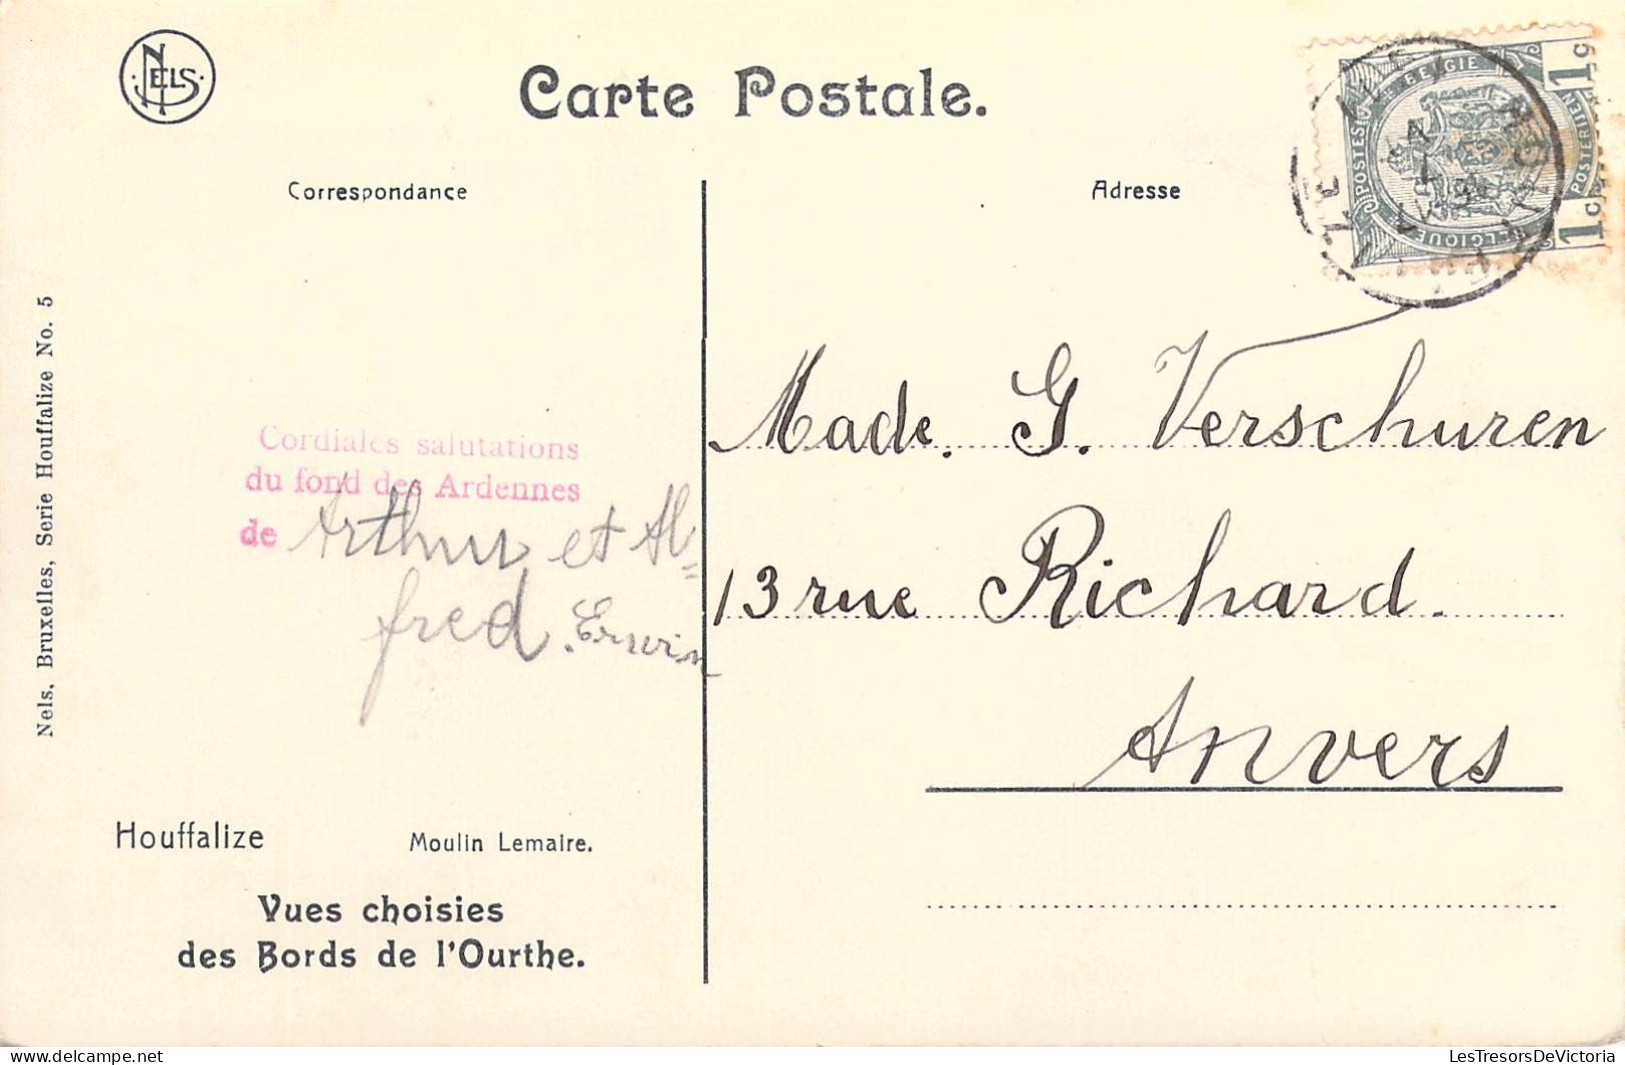 NELS
Carte Postale.
Correspondance
Adresse
BELGIE
POSTES
POSTERIJEN
BELGIQUE
1c 1c
Nels, Bruxelles, Serie Houffalize No. 5
Cordiales salutations
du fond des Ardennes
de Arthur et Al=
fred. Erwin
Made. G. Verschuren
13 rue Richard.
Anvers
Houffalize Moulin Lemaire.
Vues choisies
des Bords de l'Ourthe.
www.delcampe.net
LesTresorsDeVictoria